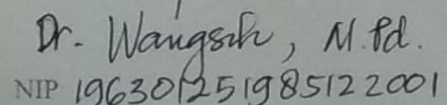 Dr. Wangsih, M.Pd.
NIP 196301251985122001